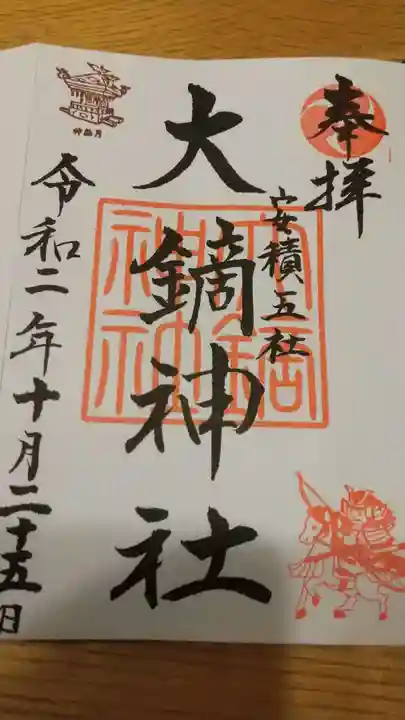 奉拝
安積五社
大鏑神社
令和二年十月二十五日
神無月